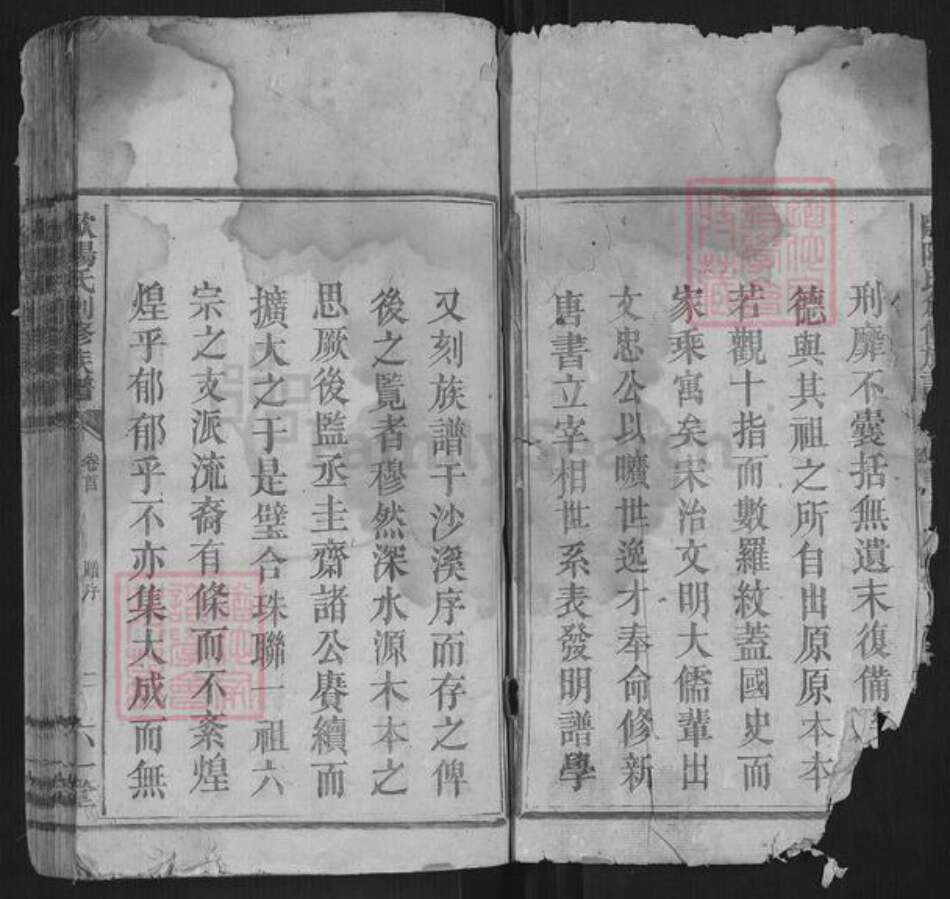 刑靡不囊括無遺末復備
德與其祖之所自出原原本本
若觀十指而數羅紋蓋國史而
家乘寓矣宋治文明大儒輩出
文忠公以曠世逸才奉命修新
唐書立宰相世系表發明譜學
又刻族譜于沙溪序而存之俾
後之覽者穆然深水源木本之
思厥後監丞圭齋諸公賡續而
擴大之于是璧合珠聯一祖六
宗之支派流裔有條而不紊煌
煌乎郁郁乎不亦集大成而無
歐陽氏創修族譜
卷首
六一堂
FamilySearch